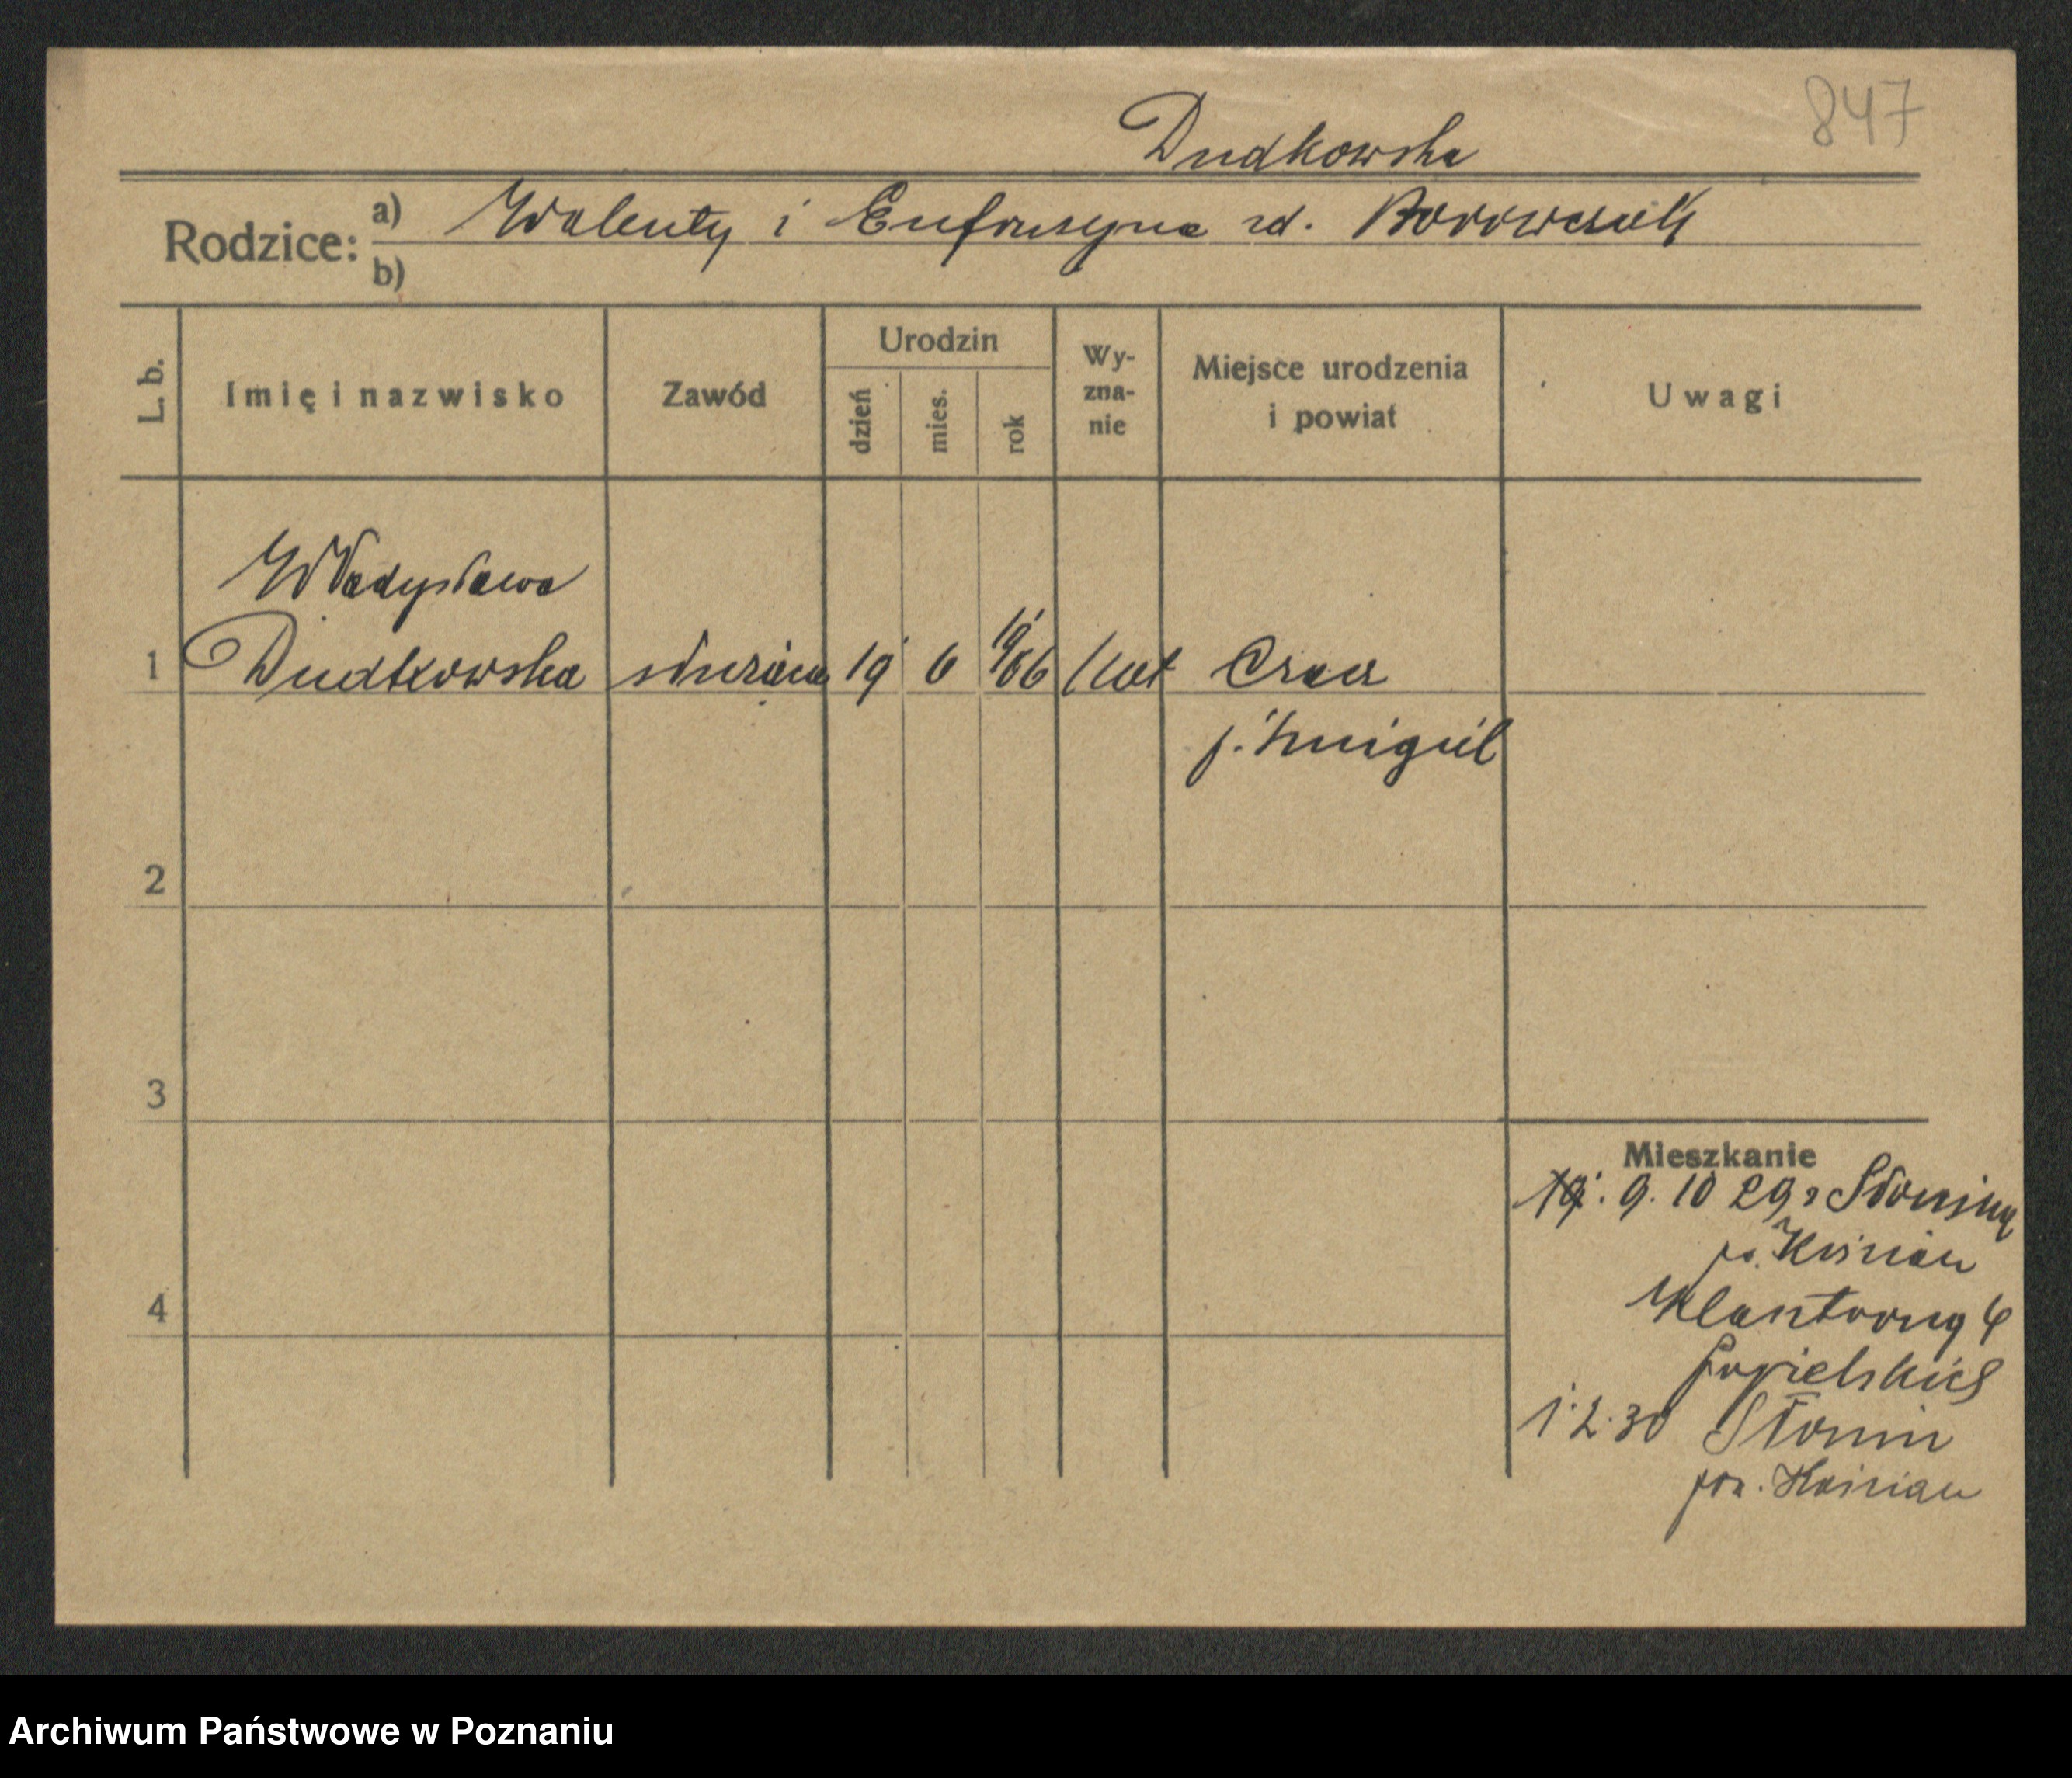 847
Dudkowska
Rodzice: a) Walenty i Eufrozyna rd. Borowczak
b)
L. b. Imię i nazwisko Zawód Urodzin dzień mies. rok Wyznanie Miejsce urodzenia i powiat Uwagi
Władysława
1 Dudkowska służąca 19 6 1906 kat Czacz
p. Śmigiel
2
3
Mieszkanie
9. 10 29 z
p. Kościan
4 Klasztorny 4
1.2.30 Słonin
pow. Kościan
Archiwum Państwowe w Poznaniu